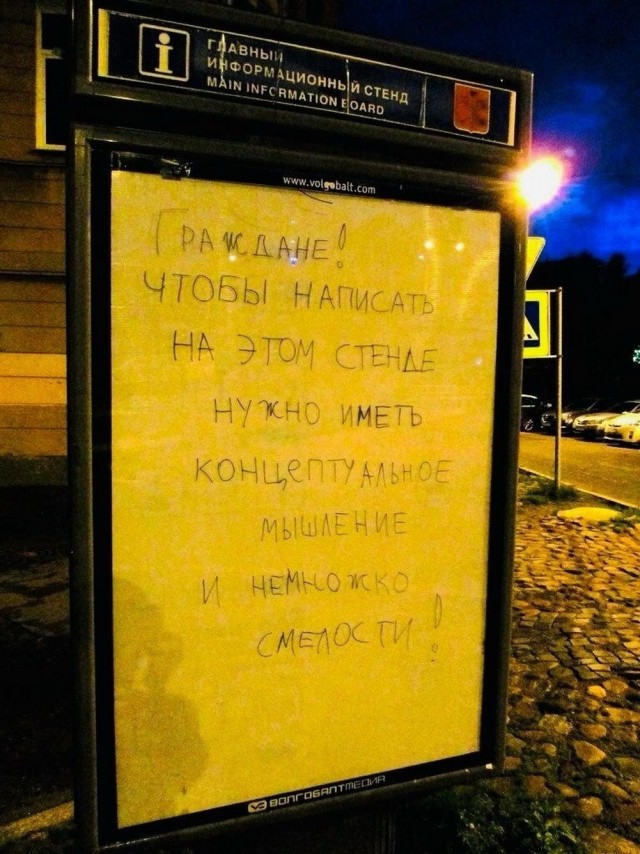 ГЛАВНЫЙ
ИНФОРМАЦИОННЫЙ СТЕНД
MAIN INFORMATION BOARD
www.volgobalt.com
ГРАЖДАНЕ!
ЧТОБЫ НАПИСАТЬ
НА ЭТОМ СТЕНДЕ
НУЖНО ИМЕТЬ
КОНЦЕПТУАЛЬНОЕ
МЫШЛЕНИЕ
И НЕМНОЖКО
СМЕЛОСТИ!
ВОЛГОБАЛТМЕДИА